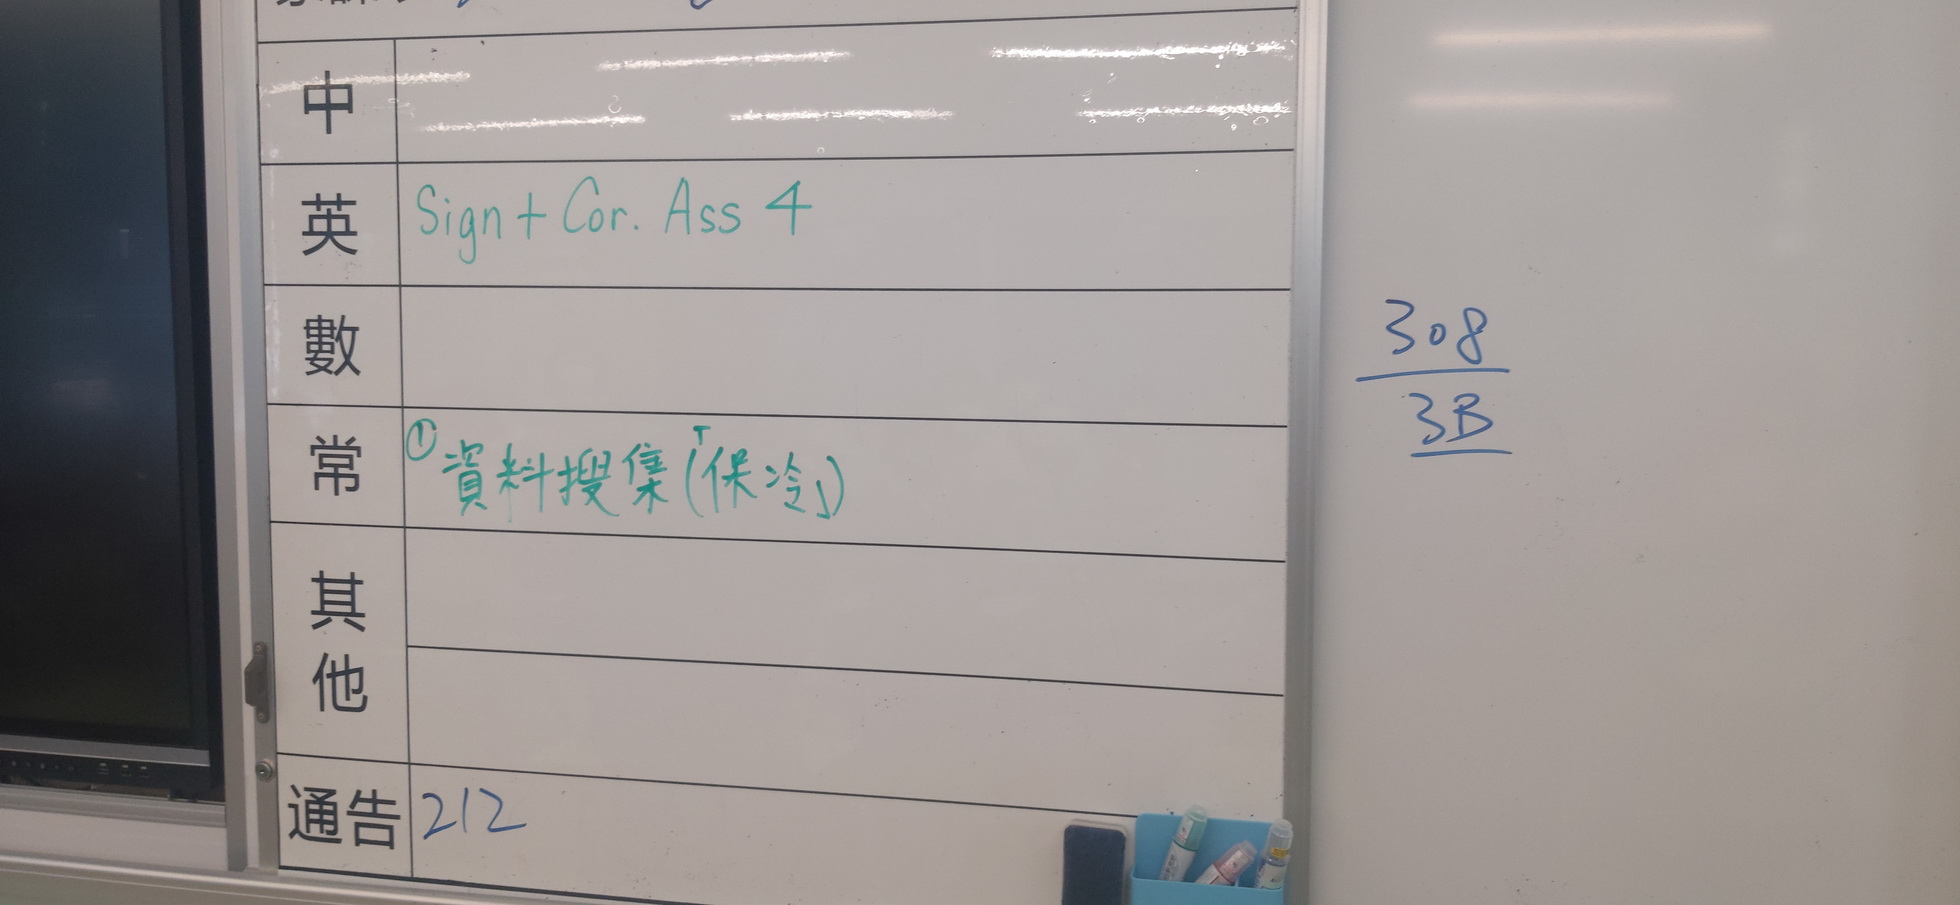 中
英 Sign + Cor. Ass 4
數
常 ① 資料搜集(「保冷」)
其他
通告 212
308
3B